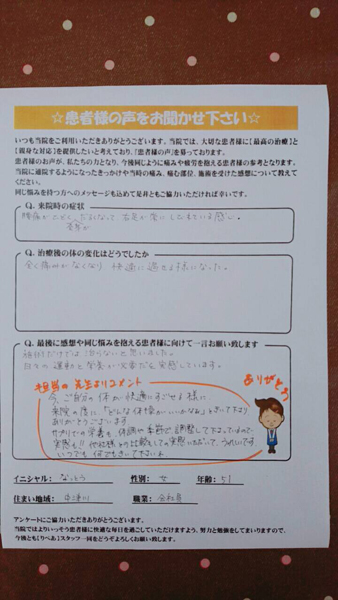 ☆患者様の声をお聞かせ下さい☆
いつも当院をご利用いただきありがとうございます。当院では、大切な患者様に【最高の治療】と
【親身な対応】を提供したいと考えており、「患者様の声」を募っております。
患者様のお声が、私たちの力となり、今後同じように痛みや疲労を抱える患者様の参考となります。
当院に通院するようになったきっかけや当時の痛み、痛む部位、施術を受けた感想について教えて
ください。
同じ悩みを持つ方へのメッセージも込めて是非ともご協力いただければ幸いです。
Q. 来院時の症状
腰痛がひどく、
Q. 治療後の体の変化はどうでしたか
全く痛みがなくなり、快適に過せる様になった。
Q. 最後に感想や同じ悩みを抱える患者様に向けて一言お願い致します
施術だけでは、治らないと思いました。
日々の運動と栄養が大事だと実感しています。
担当の先生よりコメント
ありがとう
今、ご自分の体が快適にすごせる様に
来院の度に「どんな体操がいいかな」ときいて下さり
ありがとうございます
サプリでの栄養も、体調や季節で調整して下さっているので
実感も!! 他社様より比較しての実感いただいて、うれしいです
いつでも何でもきいて下さいね
イニシャル: なっとう 性別: 女 年齢: 51
住まい地域: 中津川 職業: 会社員
アンケートにご協力いただきありがとうございます。
当院ではよりいっそう患者様に快適な毎日を過ごしていただけますよう、努力と勉強をしてまいりますので、
今後とも(りべあ)スタッフ一同をどうぞよろしくお願い致します。